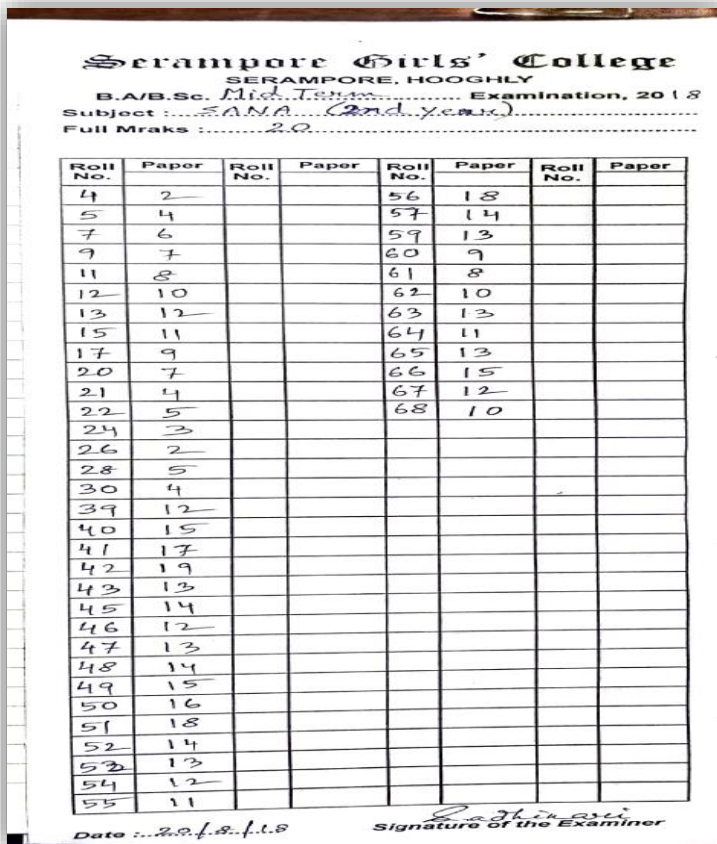 Serampore Girls' College
SERAMPORE, HOOGHLY
B.A/B.Sc. Mid Term Examination, 2018
Subject : SANA (2nd year)
Full Mraks : 20
Roll No. Paper Roll No. Paper Roll No. Paper Roll No. Paper
4 2 56 18
5 4 57 14
7 6 59 13
9 7 60 9
11 8 61 8
12 10 62 10
13 12 63 13
15 11 64 11
17 9 65 13
20 7 66 15
21 4 67 12
22 5 68 10
24 3
26 2
28 5
30 4
39 12
40 15
41 17
42 19
43 13
45 14
46 12
47 13
48 14
49 15
50 16
51 18
52 14
53 13
54 12
55 11
Date : 20/8/18 Signature of the Examiner